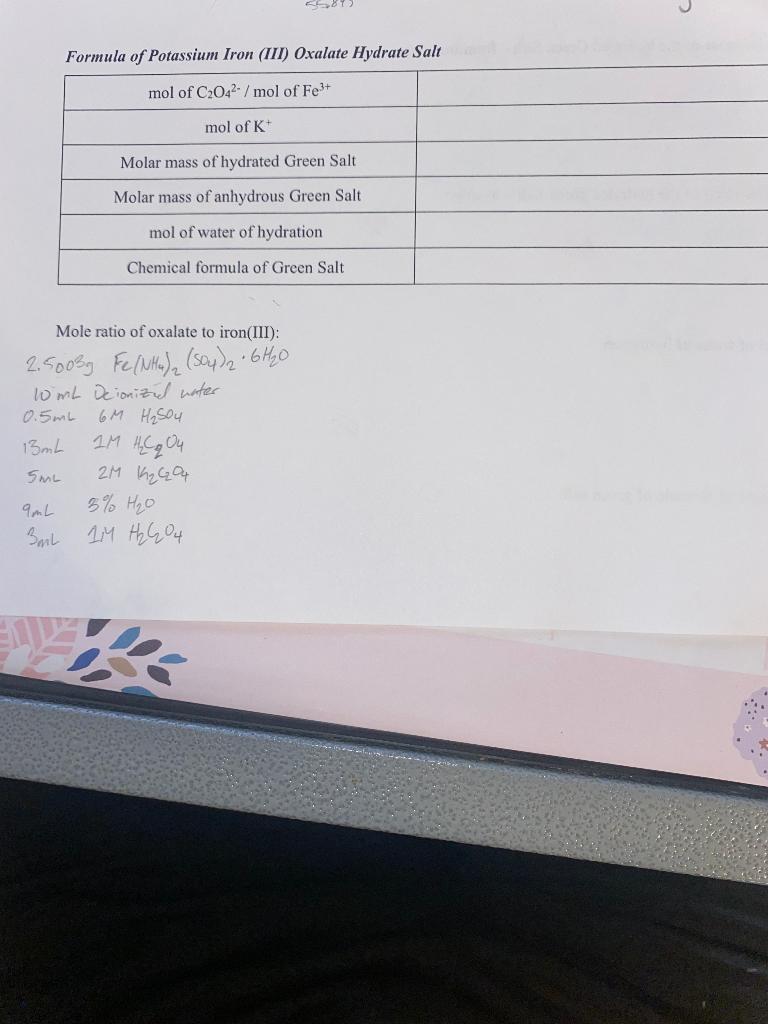 Formula of Potassium Iron (III) Oxalate Hydrate Salt
mol of C₂O₄²⁻ / mol of Fe³⁺
mol of K⁺
Molar mass of hydrated Green Salt
Molar mass of anhydrous Green Salt
mol of water of hydration
Chemical formula of Green Salt
Mole ratio of oxalate to iron(III):
2.5003g Fe(NH₄)₂(SO₄)₂·6H₂O
10 mL Deionized water
0.5mL 6M H₂SO₄
13mL 1M H₂C₂O₄
5mL 2M K₂C₂O₄
9mL 3% H₂O
3mL 1M H₂C₂O₄